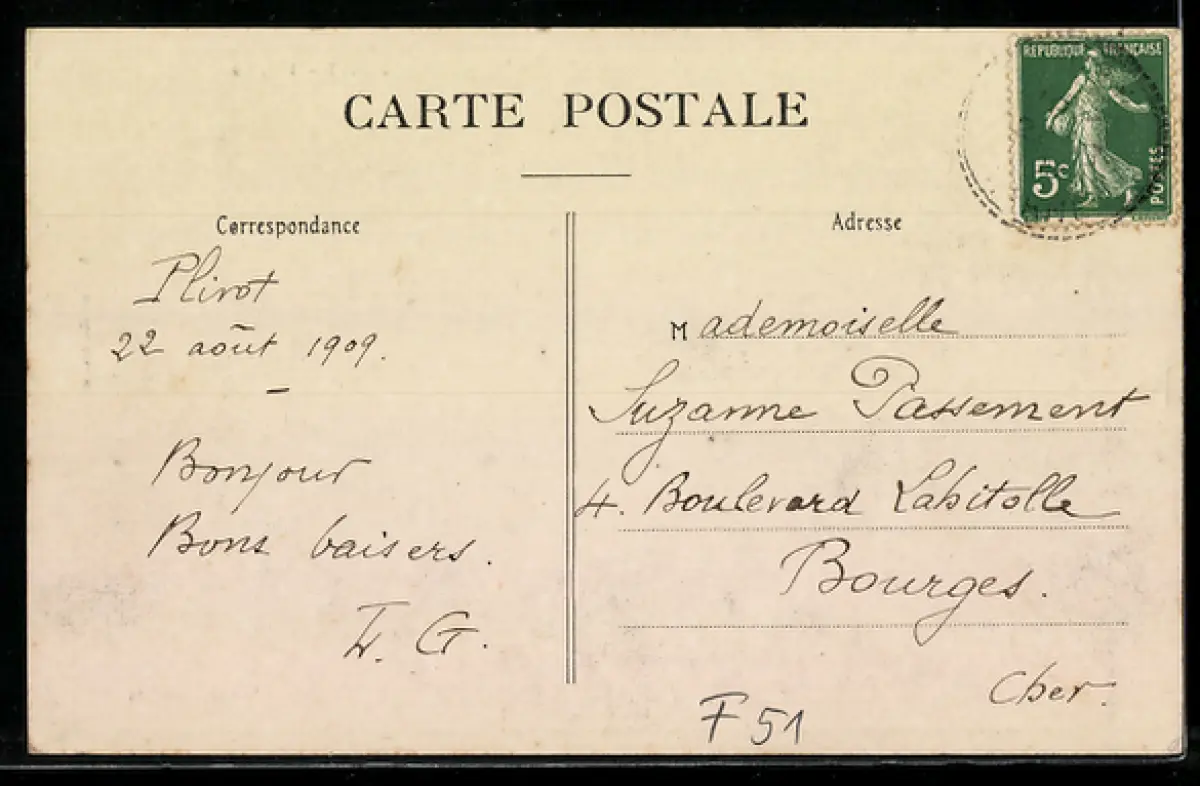 CARTE POSTALE
REPUBLIQUE FRANÇAISE
5c
POSTES
Correspondance
Plivot
22 août 1909.
Bonjour
Bons baisers.
G.
Adresse
Mademoiselle
Suzanne Passement
4. Boulevard Lahitolle
Bourges.
Cher.
F 51